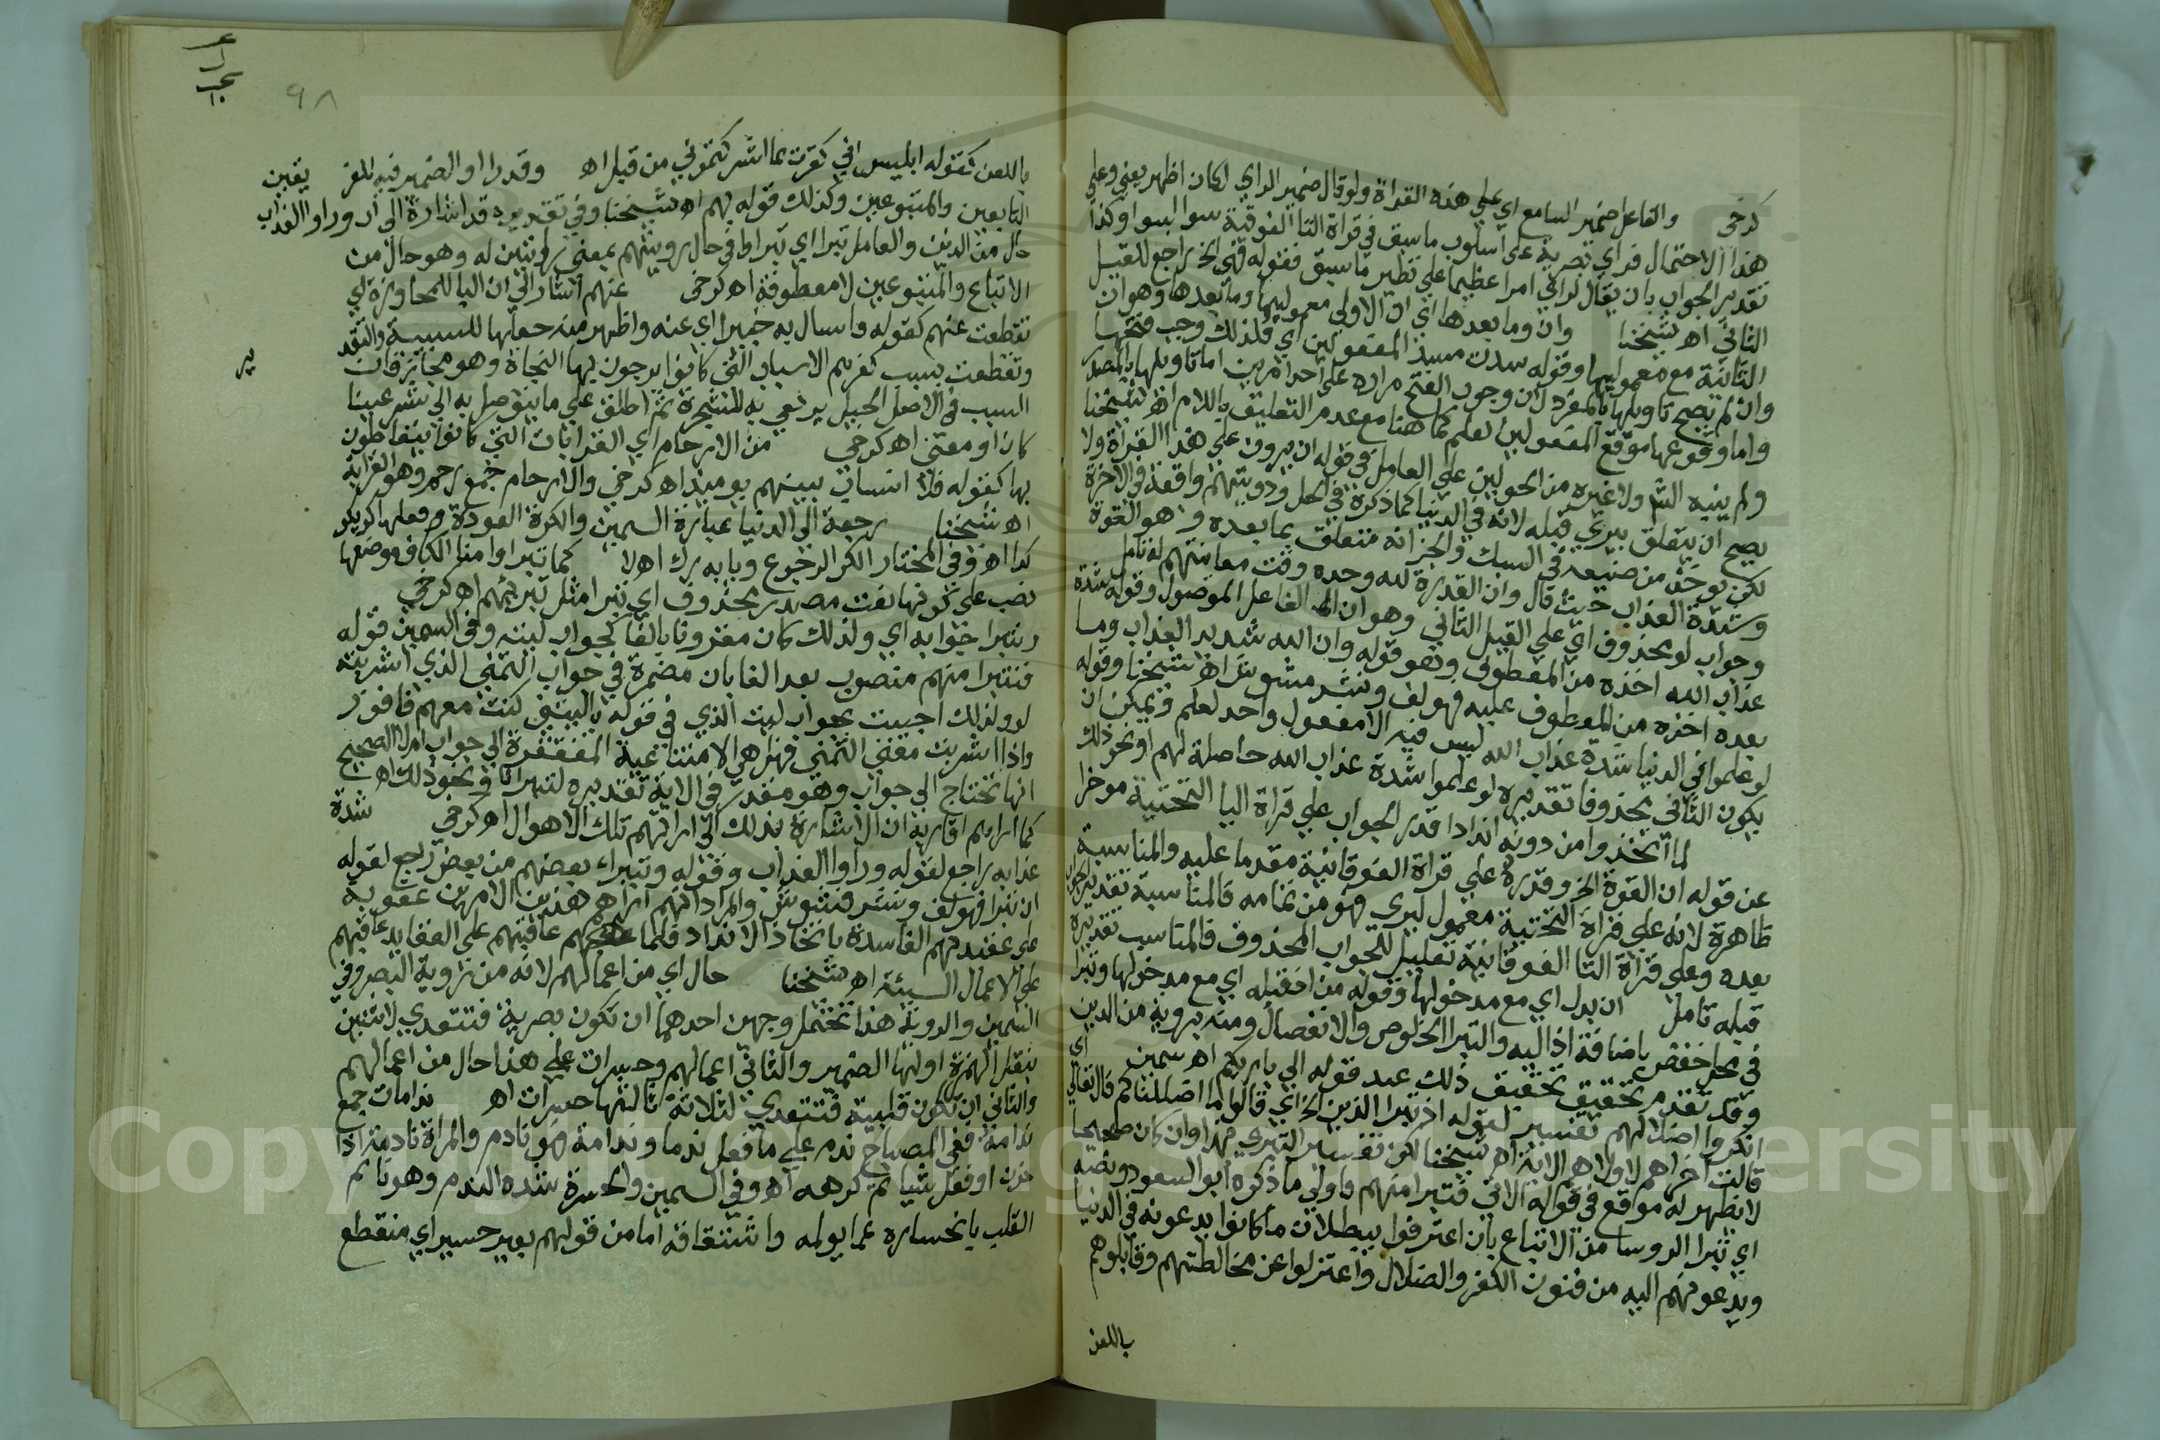 كرخي والفاعل ضمير السامع اي على هذه القراة ولو قال ضمير الراي لكان اظهر يعني وعلى
هذا الاحتمال فراي بصرية على اسلوب ما سبق في قراة التا الفوقية سوا بسوا وكذا
تقدير الجواب بان يقال لراي امرا عظيما على نظير ما سبق فقوله فهي الخ راجع للقيل
الثاني اه شيخنا وان وما بعدها اي ان الاولى معموليها وما بعدها وهو ان
الثانية مع معموليها وقوله سدت مسد المفعولين اي فلذلك وجب فتحها
وان لم يصح تاويلها بالمفرد لان وجوب الفتح مداره على احد امرين اما تاويلها بالمصدر
واما وقوعها موقع المفعولين لعلم كما هنا مع عدم التعليق باللام اه شيخنا
ولم ينبه الش ولا غيره من الحولين على العامل في قوله ان يرون على هذا القراة ولا
يصح ان يتعلق بيرى قبله لانه في الدنيا كما ذكره في الحل ورويتهم واقعة في الاخرة
لكن يوخذ من صنيعه في السبك والجزانه متعلق بما بعده وهو القوة
وشدة العذاب حيث قال وان القدرة لله وحده وقت معاينتهم له تامل
وجواب لو محذوف اي على القيل الثاني وهو ان الفاعل الموصول وقوله شدة
عذاب الله اخذه من المعطوف وهو قوله وان الله شديد العذاب وما
بعده اخذه من المعطوف عليه فهو لف ونشر مشوش اه شيخنا وقوله
لو علموا في الدنيا شدة عذاب الله ليس فيه الا مفعول واحد لعلم ويمكن ان
يكون الثاني محذوفا تقديره لو علموا شدة عذاب الله حاصلة لهم او نحو ذلك
لما اتخذوا من دونه اندادا قدر الجواب على قراة اليا التحتية موخرا
عن قوله ان القوة الخ وقدره على قراة الفوقانية مقدما عليه والمناسبة
ظاهرة لانه على قراة التحتية معمول ليرى فهو من تمامه فالمناسبة تقدير الجواب
بعده وعلى قراة التا الفوقانية تعليل للجواب المحذوف فالمناسب تقديره
قبله تامل ان بدل اي مع مدخولها وقوله من اذ قبله اي مع مدخولها وتبرا
في محل خفض باضافة اذ اليه والتبرا الخلوص والانفصال ومنه برويت من الدين
وقد تقدم تحقيق تحقيق ذلك عند قوله الى باريكم اه سمين اي
انكروا اضلالهم تفسير لقوله اذ تبرا الذين الخ اي قالوا ما اضللناكم قال تعالى
قالت اخراهم لاولاهم الاية اه شيخنا لكن تفسير التبري بهذا وان كان صحيحا
لا يظهر له موقع في قوله الاتي فنتبرا منهم واولى ما ذكره ابو السعود ونصه
اي تبرا الروسا من الاتباع بان اعترفوا ببطلان ما كانوا يدعونه في الدنيا
ويدعونهم اليه من فنون الكفر والضلال واعتزلوا عن مخالطتهم وقابلوهم
باللعن
٩٨
باللعن كقوله ابليس اني كفرت بما اشركتموني من قبل اه وقد راوا الضمير فيه للفريقين
التابعين والمتبوعين وكذلك قوله بهم اه شيخنا وفي تقديره قد اشارة الى ان وراوا العذاب
حال من الذين والعامل تبرا اي تبراوا في حال رويتهم بمعنى رائين له وهو حال من
الاتباع والمتبوعين لا معطوفة اه كرخي عنهم اشار الى ان اليا للمجاوزة اي
تقطعت عنهم كقوله واسال به خبيرا اي عنه واظهر منه جعلها للسببية والتقدير
وتقطعت بسبب كفرهم الاسباب التي كانوا يرجون بها النجاة وهو مجاز فان
السبب في الاصل الحبل يرتقي به للشجرة ثم اطلق على ما يتوصل به الى شي عينا
كان او معنى اه كرخي من الارحام اي القرابات التي كانوا يتعاطون
بها كقوله فلا انساب بينهم يوميذ اه كرخي والارحام جمع رحم وهو القرابة
اه شيخنا رجعة الى الدنيا عبارة السمين والكرة العودة وفعلها كر يكر
كرا اه وفي المختار الكر الرجوع وبابه رد اه لا كما تبراوا منا الكاف موضعها
نصب على كونها نعت مصدر محذوف اي تبرا مثل تبريهم اه كرخي
ونتبرا جوابه اي ولذلك كان مقرونا بالفا كجواب ليته وفي السمين قوله
فنتبرا منهم منصوب بعد الفا بان مضمرة في جواب التمني الذي اشربته
لو ولذلك اجيبت بجواب ليت الذي في قوله يا ليتني كنت معهم فافوز
واذا اشربت معنى التمني فهل هي الامتناعية المفتقرة الى جواب ام لا الصحيح
انها تحتاج الى جواب وهو مقدر في الاية تقديره لتبرانا ونحو ذلك اه
كما اراهم اقاربه ان الاشارة بذلك الى اراتهم تلك الاهوال اه كرخي شدة
عذابه راجع لقوله وراوا العذاب وقوله وتبراء بعضهم من بعض راجع لقوله
ان تبرا فهو لف ونشر مشوش والمراد انهم اراهم هذين الامرين عقوبة
على عقيدتهم الفاسدة باتخاذ الانداد فكما عاقبهم على العقايد عاقبهم
على الاعمال السيئة اه شيخنا حال اي من اعمالهم لانه من روية البصر وفي
السمين والروية هذا تحتمل وجهين احدهما ان تكون بصرية فتتعدي لاثنين
بنقل الهمزة اولها الضمير والثاني اعمالهم وحسرات على هذا حال من اعمالهم
والثاني ان تكون قلبية فتتعدي لثلاثة ثالثها حسرات اه ندامات جمع
ندامة ففي المصباح ندم على ما فعل ندما وندامة فهو نادم والمراة نادمة اذا
حزن او فعل شيا ثم كرهه اه وفي السمين والحسرة شدة الندم وهو تالم
القلب بانحساره عما يولمه واشتقاقه اما من قولهم بعير حسير اي منقطع
Copyright © King Saud University